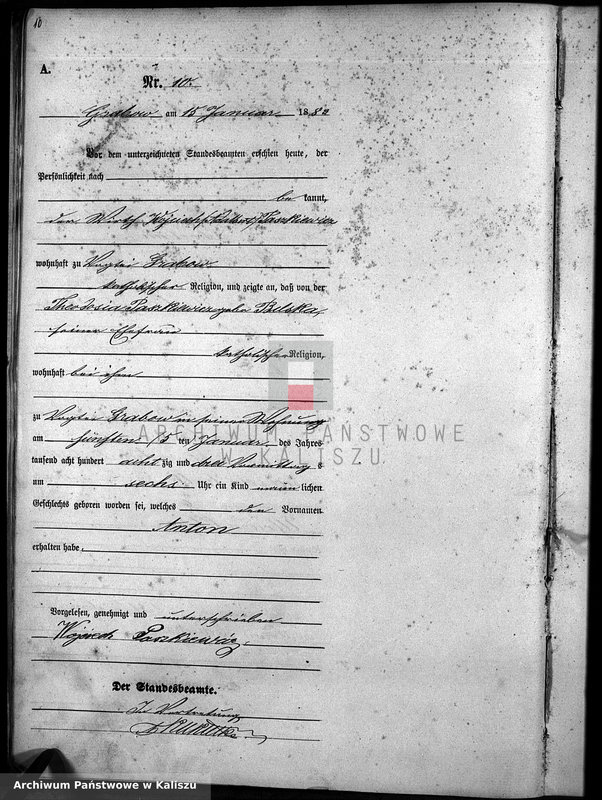 10
A.
Nr. 10.
Grabow am 15 Januar 1883
Vor dem unterzeichneten Standesbeamten erschien heute, der
Persönlichkeit nach
be kannt,
den Wirth Wojciech Paszkiewicz
wohnhaft zu Vogtei Grabow
katholischer Religion, und zeigte an, daß von der
Theodosia Paszkiewicz geb.
seiner Ehefrau
katholischer Religion,
wohnhaft bei ihm
zu Vogtei Grabow in seiner Wohnung
am fünften /5 ten Januar des Jahres
tausend acht hundert acht zig und drei Vormittag s
um sechs Uhr ein Kind männ lichen
Geschlechts geboren worden sei, welches den Vornamen
Anton
erhalten habe.
Vorgelesen, genehmigt und unterschrieben
Wojciech Paszkiewicz
Der Standesbeamte.
In Vertretung
ARCHIWUM PAŃSTWOWE
W KALISZU
Archiwum Państwowe w Kaliszu